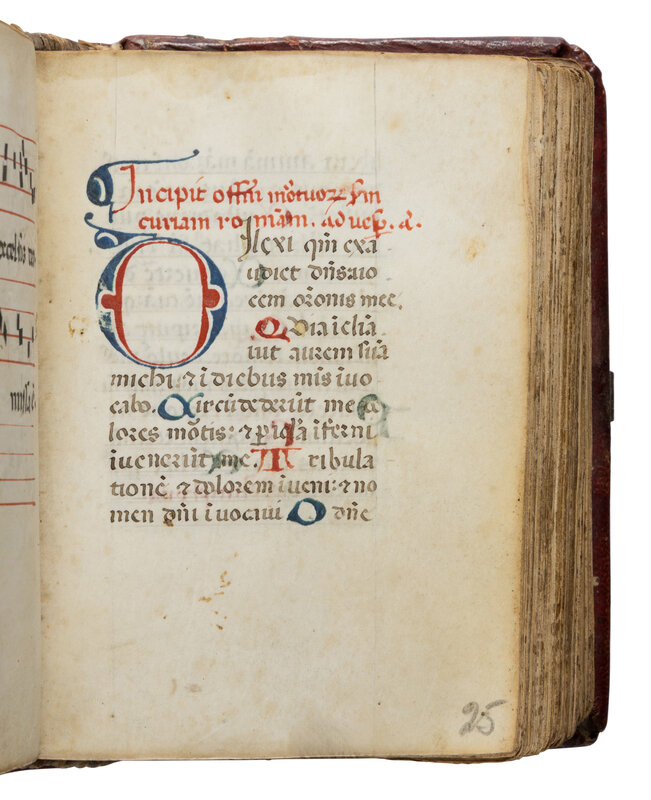 Incipit offm̄ mõtuoꝝ sm̄
curiam romãm. ad vesp̱. a.
Dilexi qm̄ exa
udiet dñs uo
cem orõnis mee.
Quia ĩcliã
uit aurem suã
michi ⁊ ĩ diebus mĩs ĩuo
cabo. Circũdederũt me do
lores mõtis: ⁊ ꝑicĺa ĩferni
ĩuenerũt me. Tribula
tionẽ ⁊ dolorem ĩueni: ⁊ no
men dñi ĩuocaui O dñe
25